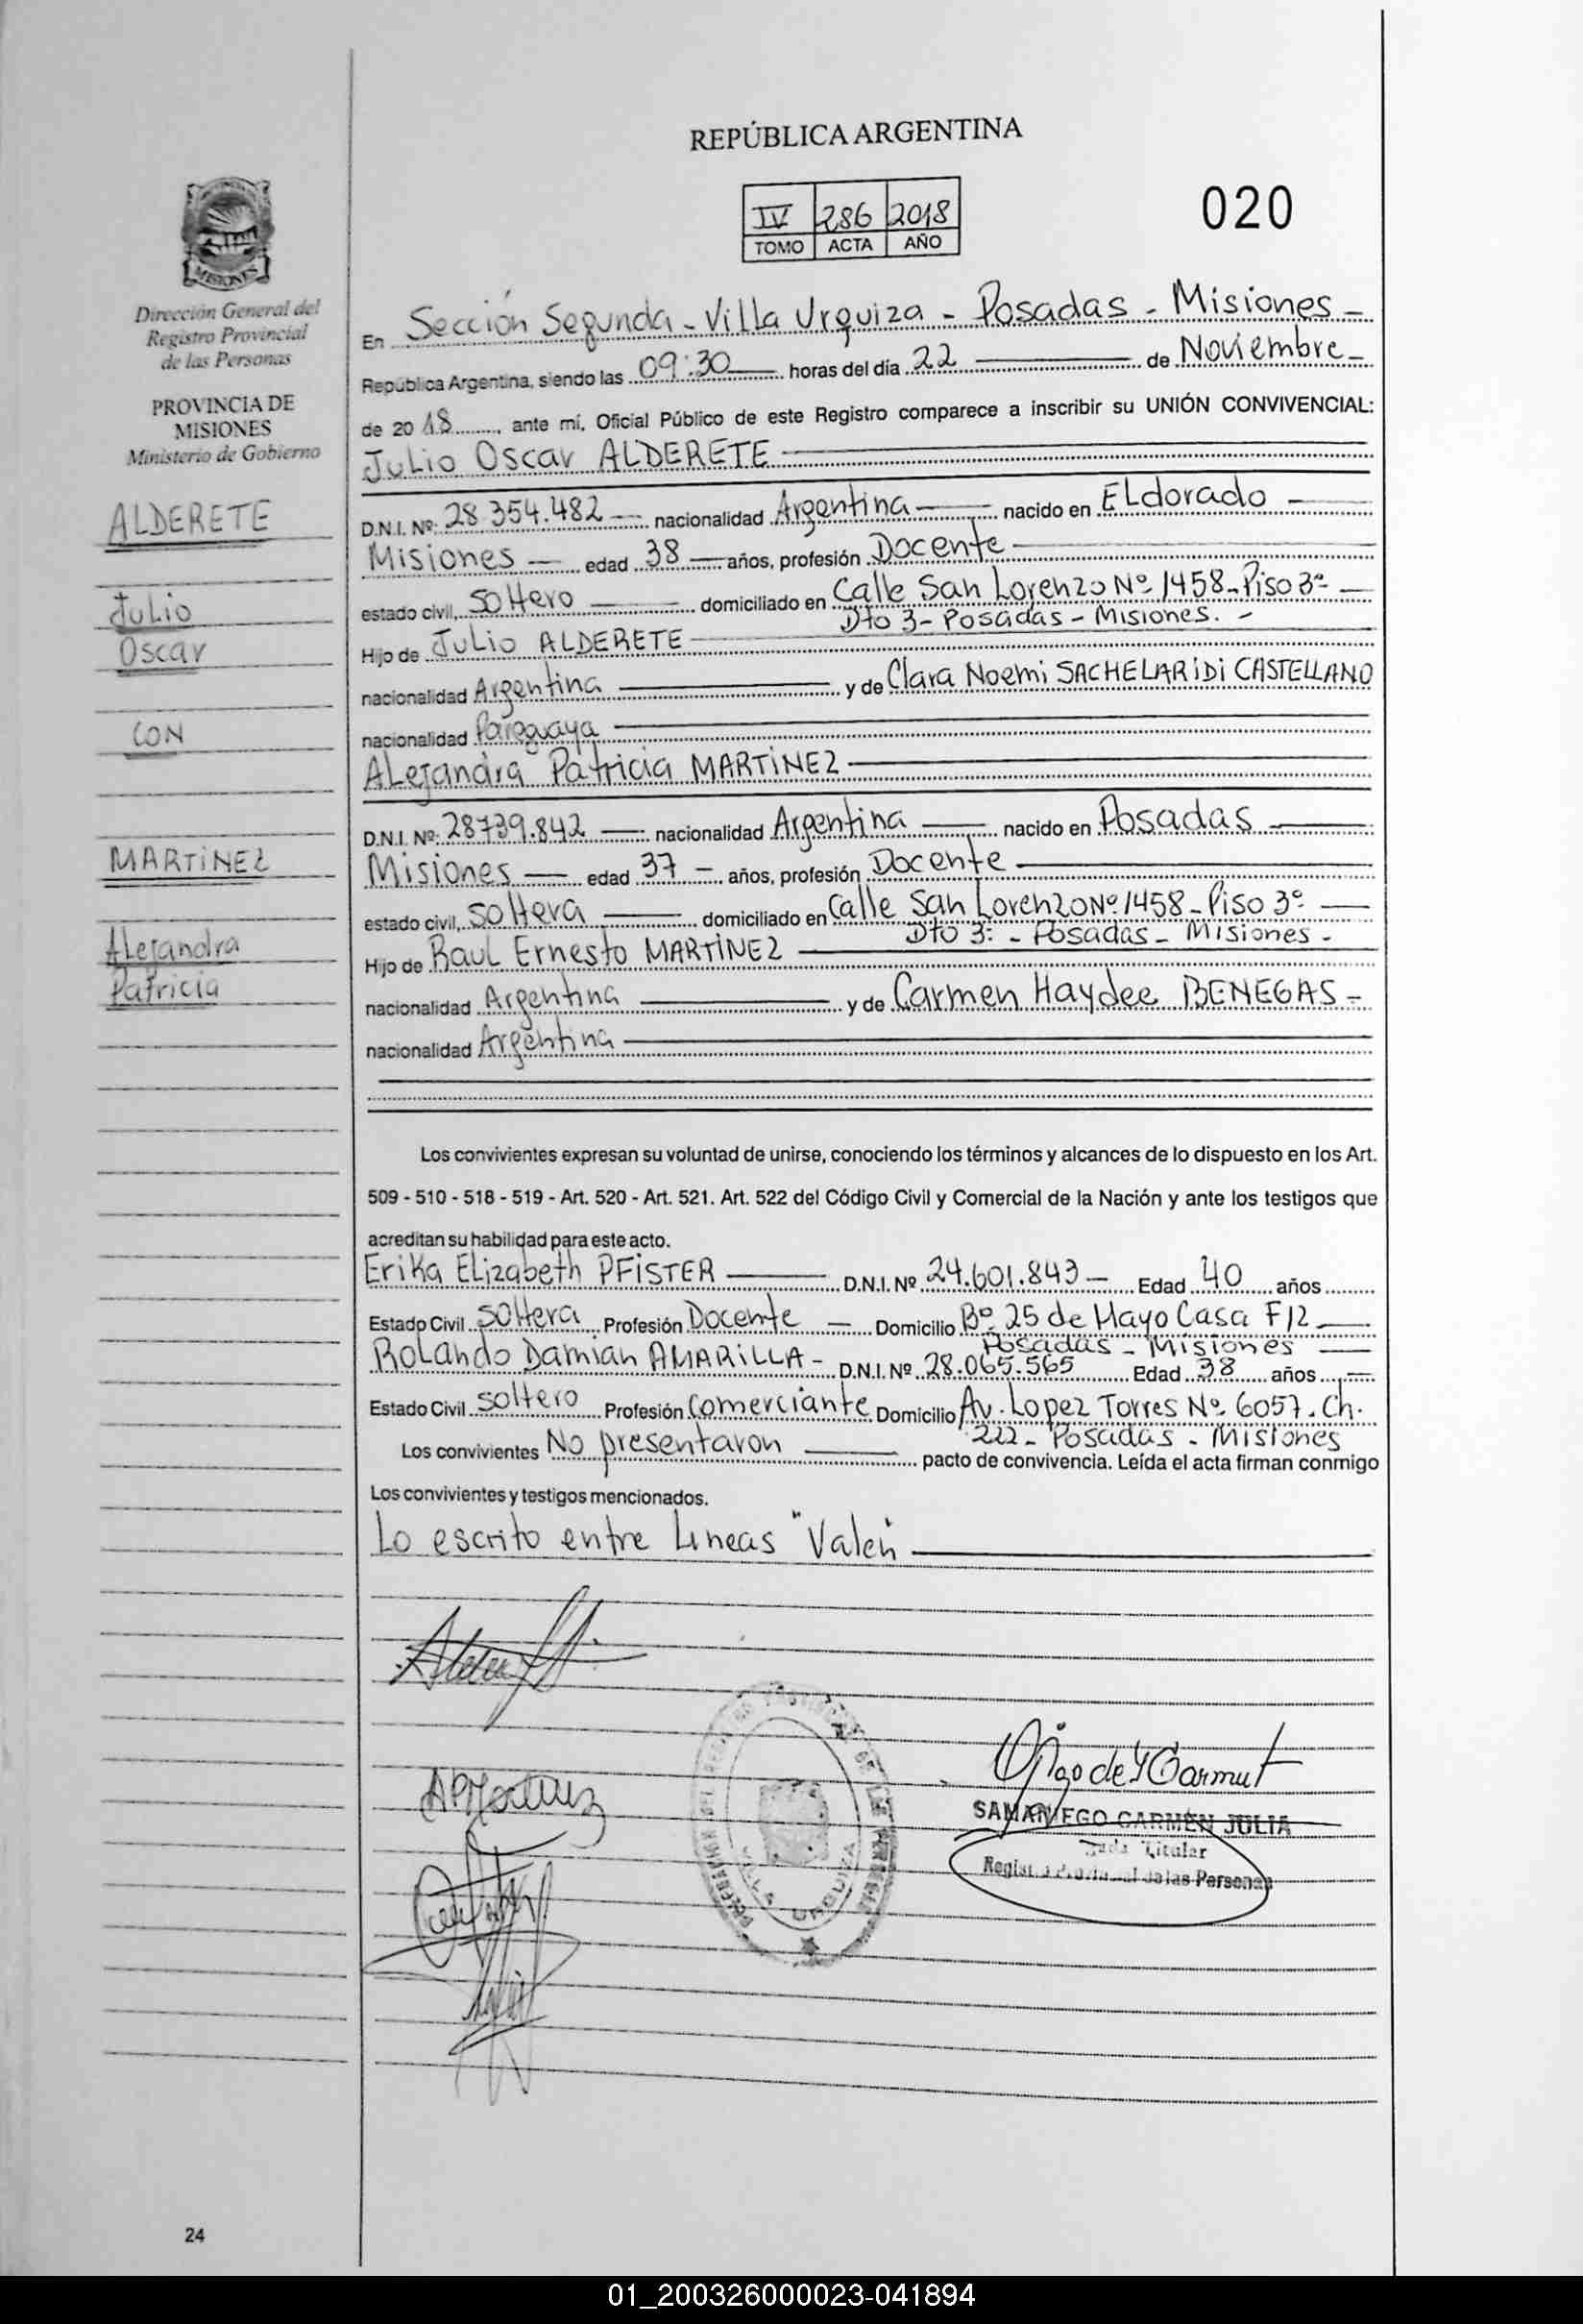 REPÚBLICA ARGENTINA
IV 286 2018
TOMO ACTA AÑO
020
MISIONES
Dirección General del
Registro Provincial
de las Personas
PROVINCIA DE
MISIONES
Ministerio de Gobierno
ALDERETE
Julio
Oscar
CON
MARTINEZ
Alejandra
Patricia
En Sección Segunda - Villa Urquiza - Posadas - Misiones -
República Argentina, siendo las 09:30 horas del día 22 de Noviembre -
de 2018, ante mí, Oficial Público de este Registro comparece a inscribir su UNIÓN CONVIVENCIAL:
Julio Oscar ALDERETE
D.N.I. Nº: 28.354.482 nacionalidad Argentina nacido en ELdorado
Misiones edad 38 años, profesión Docente
estado civil, soltero domiciliado en Calle San Lorenzo Nº 1458 - Piso 3º
Dto 3 - Posadas - Misiones. -
Hijo de Julio ALDERETE
nacionalidad Argentina y de Clara Noemi SACHELARIDI CASTELLANO
nacionalidad Paraguaya
Alejandra Patricia MARTINEZ
D.N.I. Nº: 28739.842 nacionalidad Argentina nacido en Posadas
Misiones edad 37 años, profesión Docente
estado civil, soltera domiciliado en Calle San Lorenzo Nº 1458 - Piso 3º
Dto 3: - Posadas - Misiones -
Hijo de Raul Ernesto MARTINEZ
nacionalidad Argentina y de Carmen Haydee BENEGAS -
nacionalidad Argentina
Los convivientes expresan su voluntad de unirse, conociendo los términos y alcances de lo dispuesto en los Art.
509 - 510 - 518 - 519 - Art. 520 - Art. 521. Art. 522 del Código Civil y Comercial de la Nación y ante los testigos que
acreditan su habilidad para este acto.
Erika Elizabeth PFISTER D.N.I. Nº 24.601.843 - Edad 40 años
Estado Civil soltera Profesión Docente - Domicilio Bº 25 de Mayo Casa F12
Posadas - Misiones
Rolando Damian AMARILLA - D.N.I. Nº 28.065.565 Edad 38 años
Estado Civil soltero Profesión Comerciante Domicilio Av. Lopez Torres Nº 6057. Ch.
222 - Posadas - Misiones
Los convivientes No presentaron pacto de convivencia. Leída el acta firman conmigo
Los convivientes y testigos mencionados.
Lo escrito entre Lineas "Valen"
SAMANIEGO CARMEN JULIA
Titular
Personas
VILLA URQUIZA
24
01_200326000023-041894